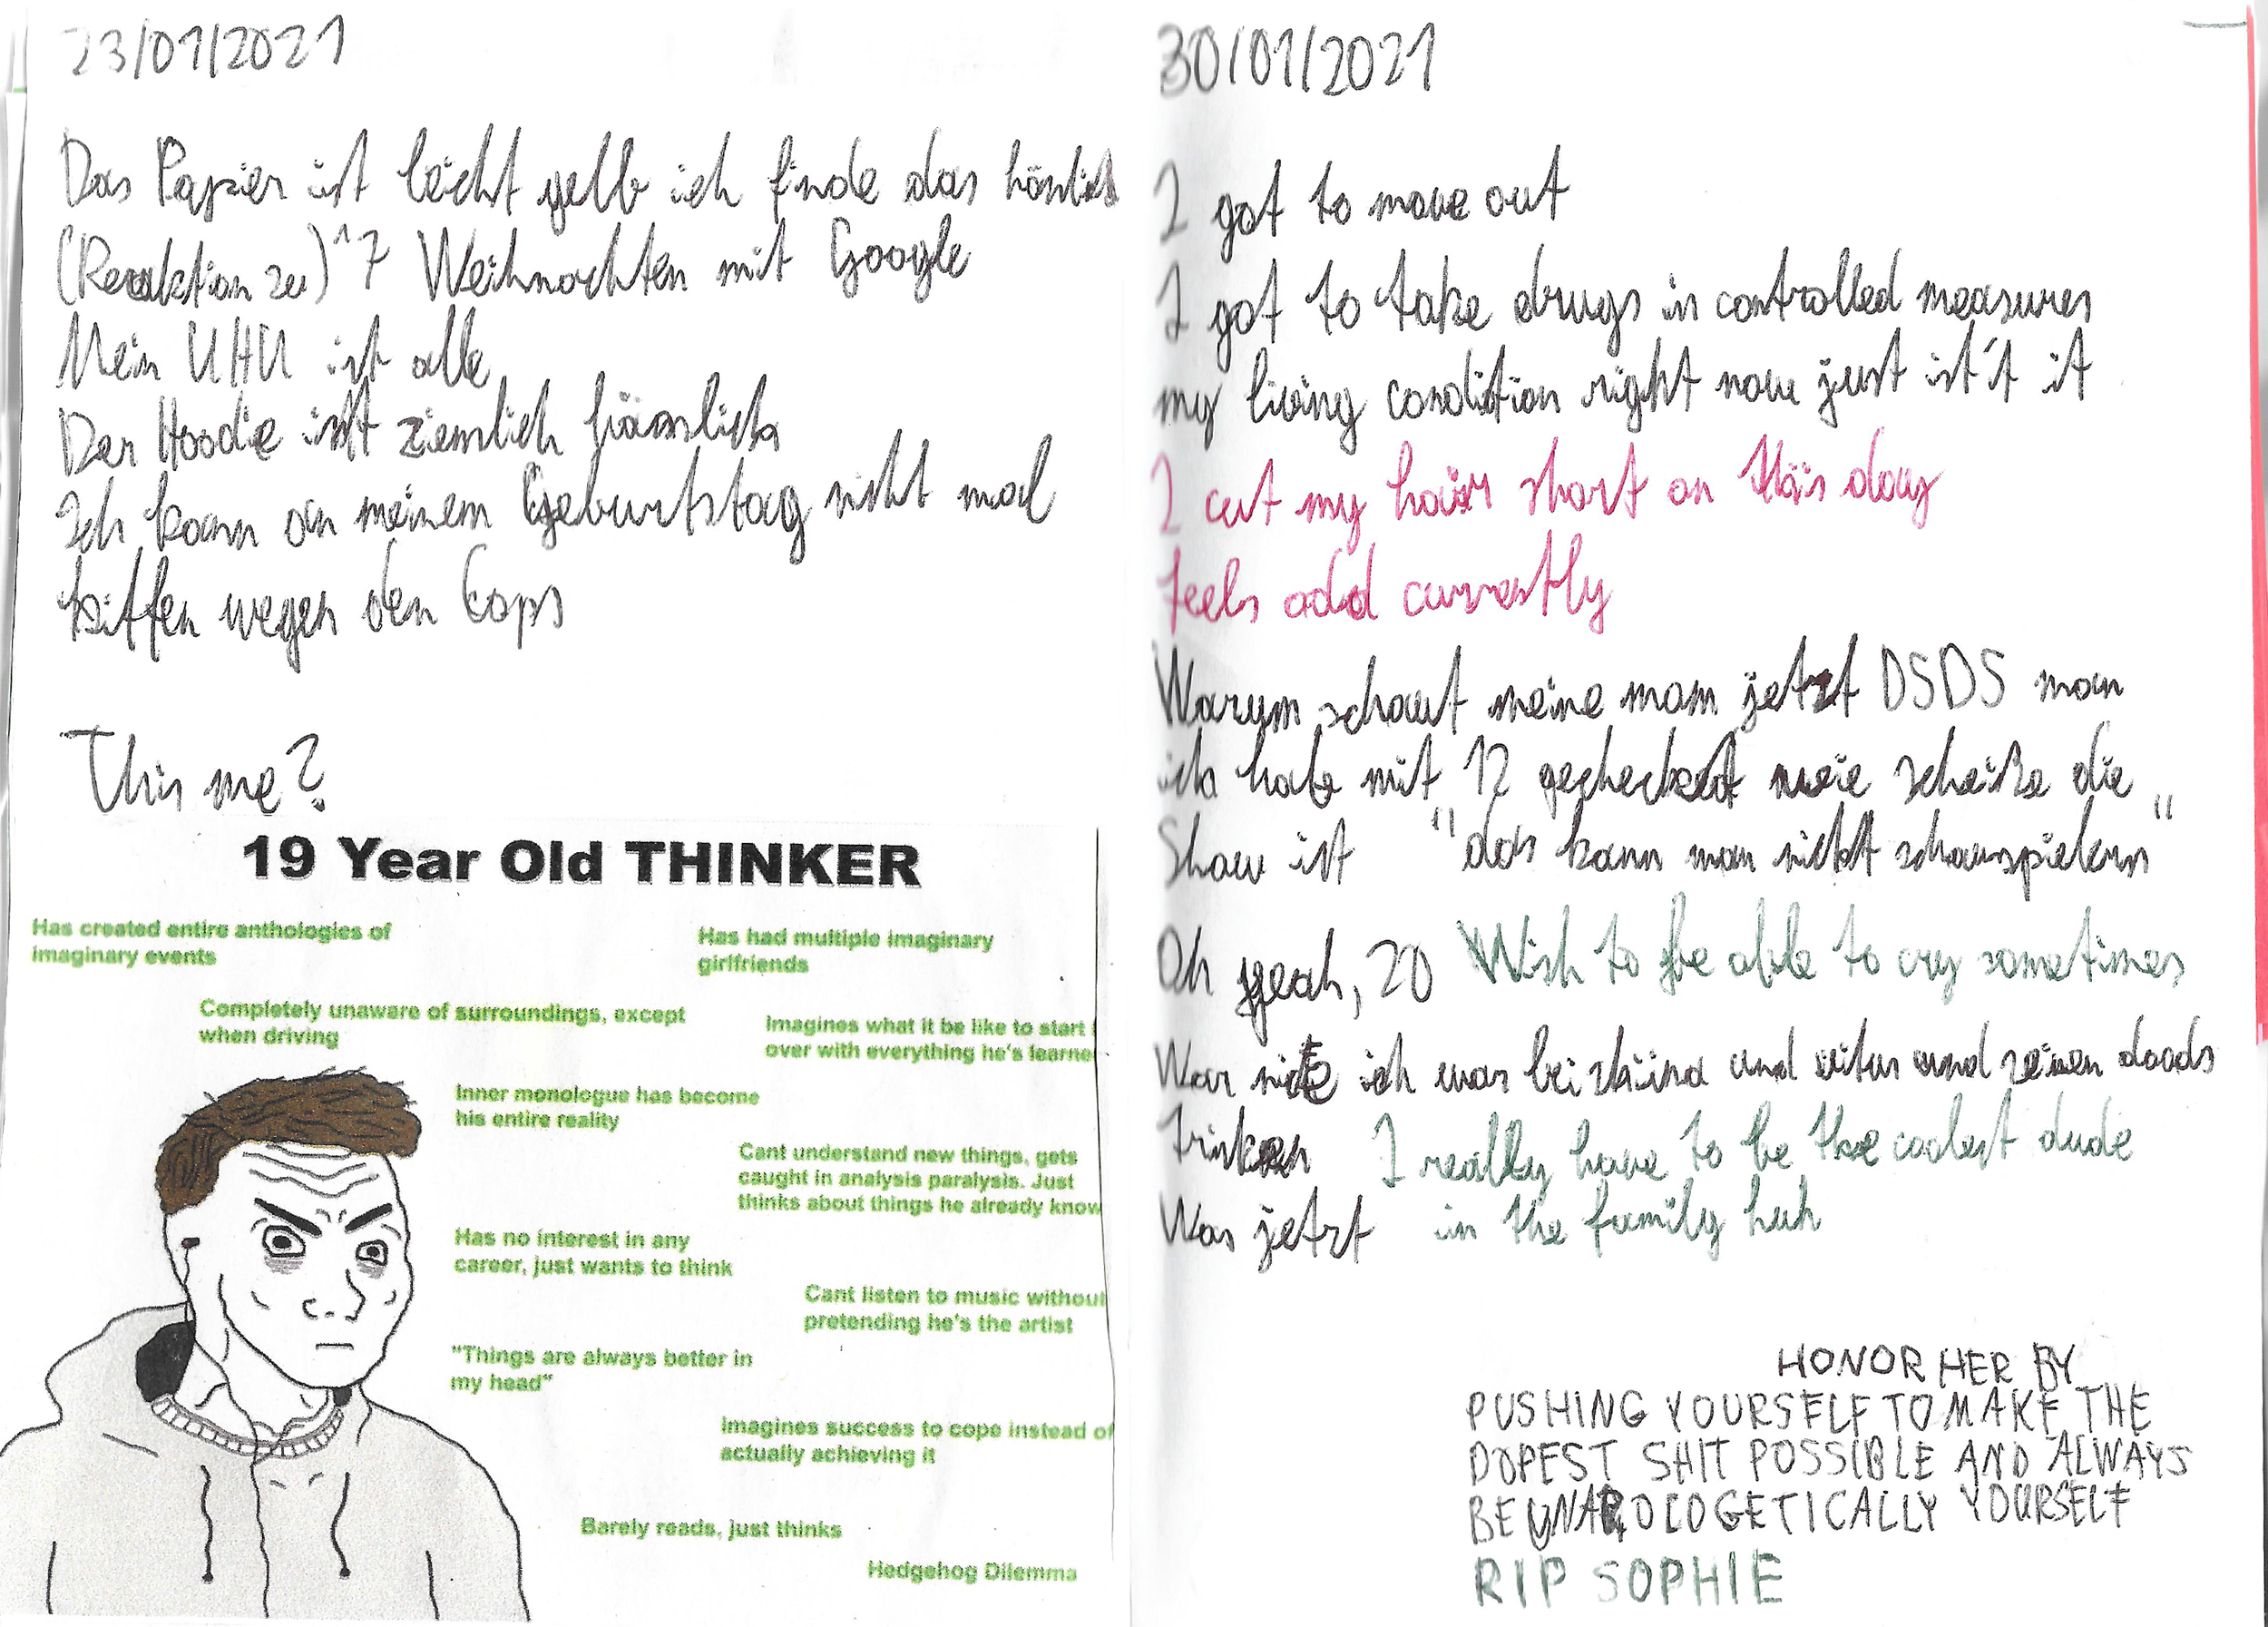 23/01/2021
Das Papier ist leicht gelb ich finde das hässlich
(Reaktion zu)^7 Weihnachten mit Google
Mein UHU ist alle
Der Hoodie ist ziemlich hässlich
Ich kann an meinem Geburtstag nicht mal
kiffen wegen den Cops
This me?
19 Year Old THINKER
Has created entire anthologies of
imaginary events
Has had multiple imaginary
girlfriends
Completely unaware of surroundings, except
when driving
Imagines what it be like to start
over with everything he's learne
Inner monologue has become
his entire reality
Cant understand new things, gets
caught in analysis paralysis. Just
thinks about things he already know
Has no interest in any
career, just wants to think
Cant listen to music without
pretending he's the artist
"Things are always better in
my head"
Imagines success to cope instead of
actually achieving it
Barely reads, just thinks
Hedgehog Dilemma
30/01/2021
I got to move out
I got to take drugs in controlled measures
my living condition right now just ist't it
I cut my hair short on this day
feels odd currently
Warum schaut meine mom jetzt DSDS man
ich habe mit 12 gecheckt wie scheiße die
Show ist "das kann man nicht schauspielern"
Oh yeah, 20 Wish to be able to cry sometimes
War nice ich war bei und und seinen dads
trinken I really have to be the coolest dude
Was jetzt in the family huh
HONOR HER BY
PUSHING YOURSELF TO MAKE THE
DOPEST SHIT POSSIBLE AND ALWAYS
BE UNAPOLOGETICALLY YOURSELF
RIP SOPHIE